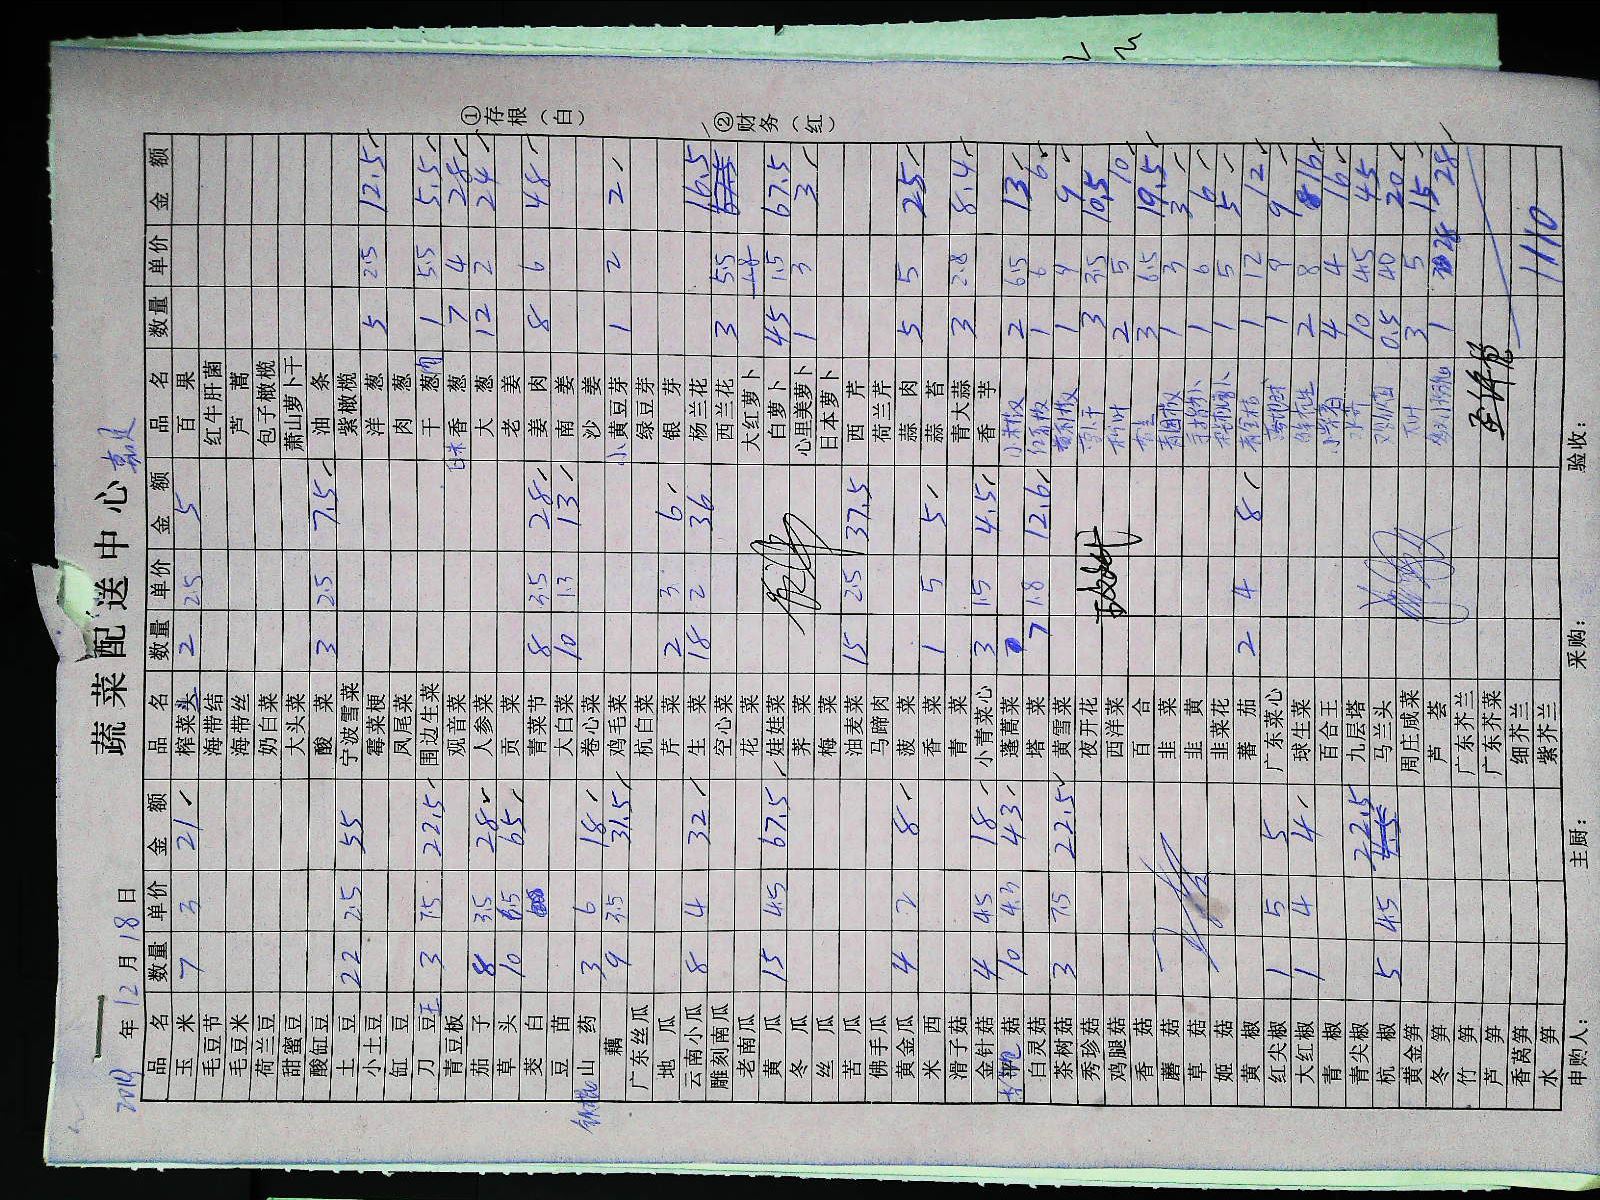 蔬菜配送中心
2014 年 12 月 18 日
品名 数量 单价 金额 品名 数量 单价 金额 品名 数量 单价 金额
玉米 7 3 21 榨菜头 2 2.5 5 百果
毛豆节 海带结 红牛肝菌
毛豆米 海带丝 芦蒿
荷兰豆 奶白菜 包子橄榄
甜蜜豆 大头菜 萧山萝卜干
酸缸豆 酸菜 3 2.5 7.5 油条
土豆 22 2.5 55 宁波雪菜 紫橄榄
小土豆 霉菜梗 洋葱 5 2.5 12.5
缸豆 凤尾菜 肉葱
刀豆 3 7.5 22.5 围边生菜 干葱肉 1 5.5 5.5
青豆板 观音菜 香葱 7 4 28
茄子 8 3.5 28 人参菜 大葱 12 2 24
草头 10 6.5 65 贡菜 老姜
茭白 青菜节 8 3.5 28 姜肉 8 6 48
豆苗 大白菜 10 1.3 13 南姜
山药 3 6 18 卷心菜 沙姜
藕 9 3.5 31.5 鸡毛菜 小黄豆芽 1 2 2
广东丝瓜 杭白菜 绿豆芽
地瓜 芹菜 2 3 6 银芽
云南小瓜 8 4 32 生菜 18 2 36 杨兰花
雕刻南瓜 空心菜 西兰花 3 5.5 16.5
老南瓜 花菜 大红萝卜 1.8
黄瓜 15 4.5 67.5 娃娃菜 白萝卜 45 1.5 67.5
冬瓜 荠菜 心里美萝卜 1 3 3
丝瓜 梅菜 日本萝卜
苦瓜 油麦菜 15 2.5 37.5 西芹
佛手瓜 马蹄肉 荷兰芹
黄金瓜 4 2 8 菠菜 蒜肉 5 5 25
米西 香菜 1 5 5 蒜苔
滑子菇 青菜 青大蒜 3 2.8 8.4
金针菇 4 4.5 18 小青菜心 3 1.5 4.5 香芋
菇 10 4.3 43 蓬蒿菜 小米椒 2 6.5 13
白灵菇 塔菜 7 1.8 12.6 1 6 6
茶树菇 3 7.5 22.5 黄雪菜 1 9 9
秀珍菇 夜开花 3 3.5 10.5
鸡腿菇 西洋菜 2 5 10
香菇 百合 3 6.5 19.5
蘑菇 韭菜 1 3 3
草菇 韭黄 1 6 6
姬菇 韭菜花 1 5 5
黄椒 蕃茄 2 4 8 1 12 12
红尖椒 1 5 5 广东菜心 1 9 9
大红椒 1 4 4 球生菜 2 8 16
青椒 百合王 4 4 16
青尖椒 九层塔 10 4.5 45
杭椒 5 4.5 22.5 马兰头 0.5 40 20
黄金笋 周庄咸菜 3 5 15
冬笋 芦荟 1 28 28
竹笋 广东芥兰
芦笋 广东芥菜
香莴笋 细芥兰
水笋 紫芥兰 1110
申购人： 主厨： 采购： 验收：
①存根（白）
②财务（红）